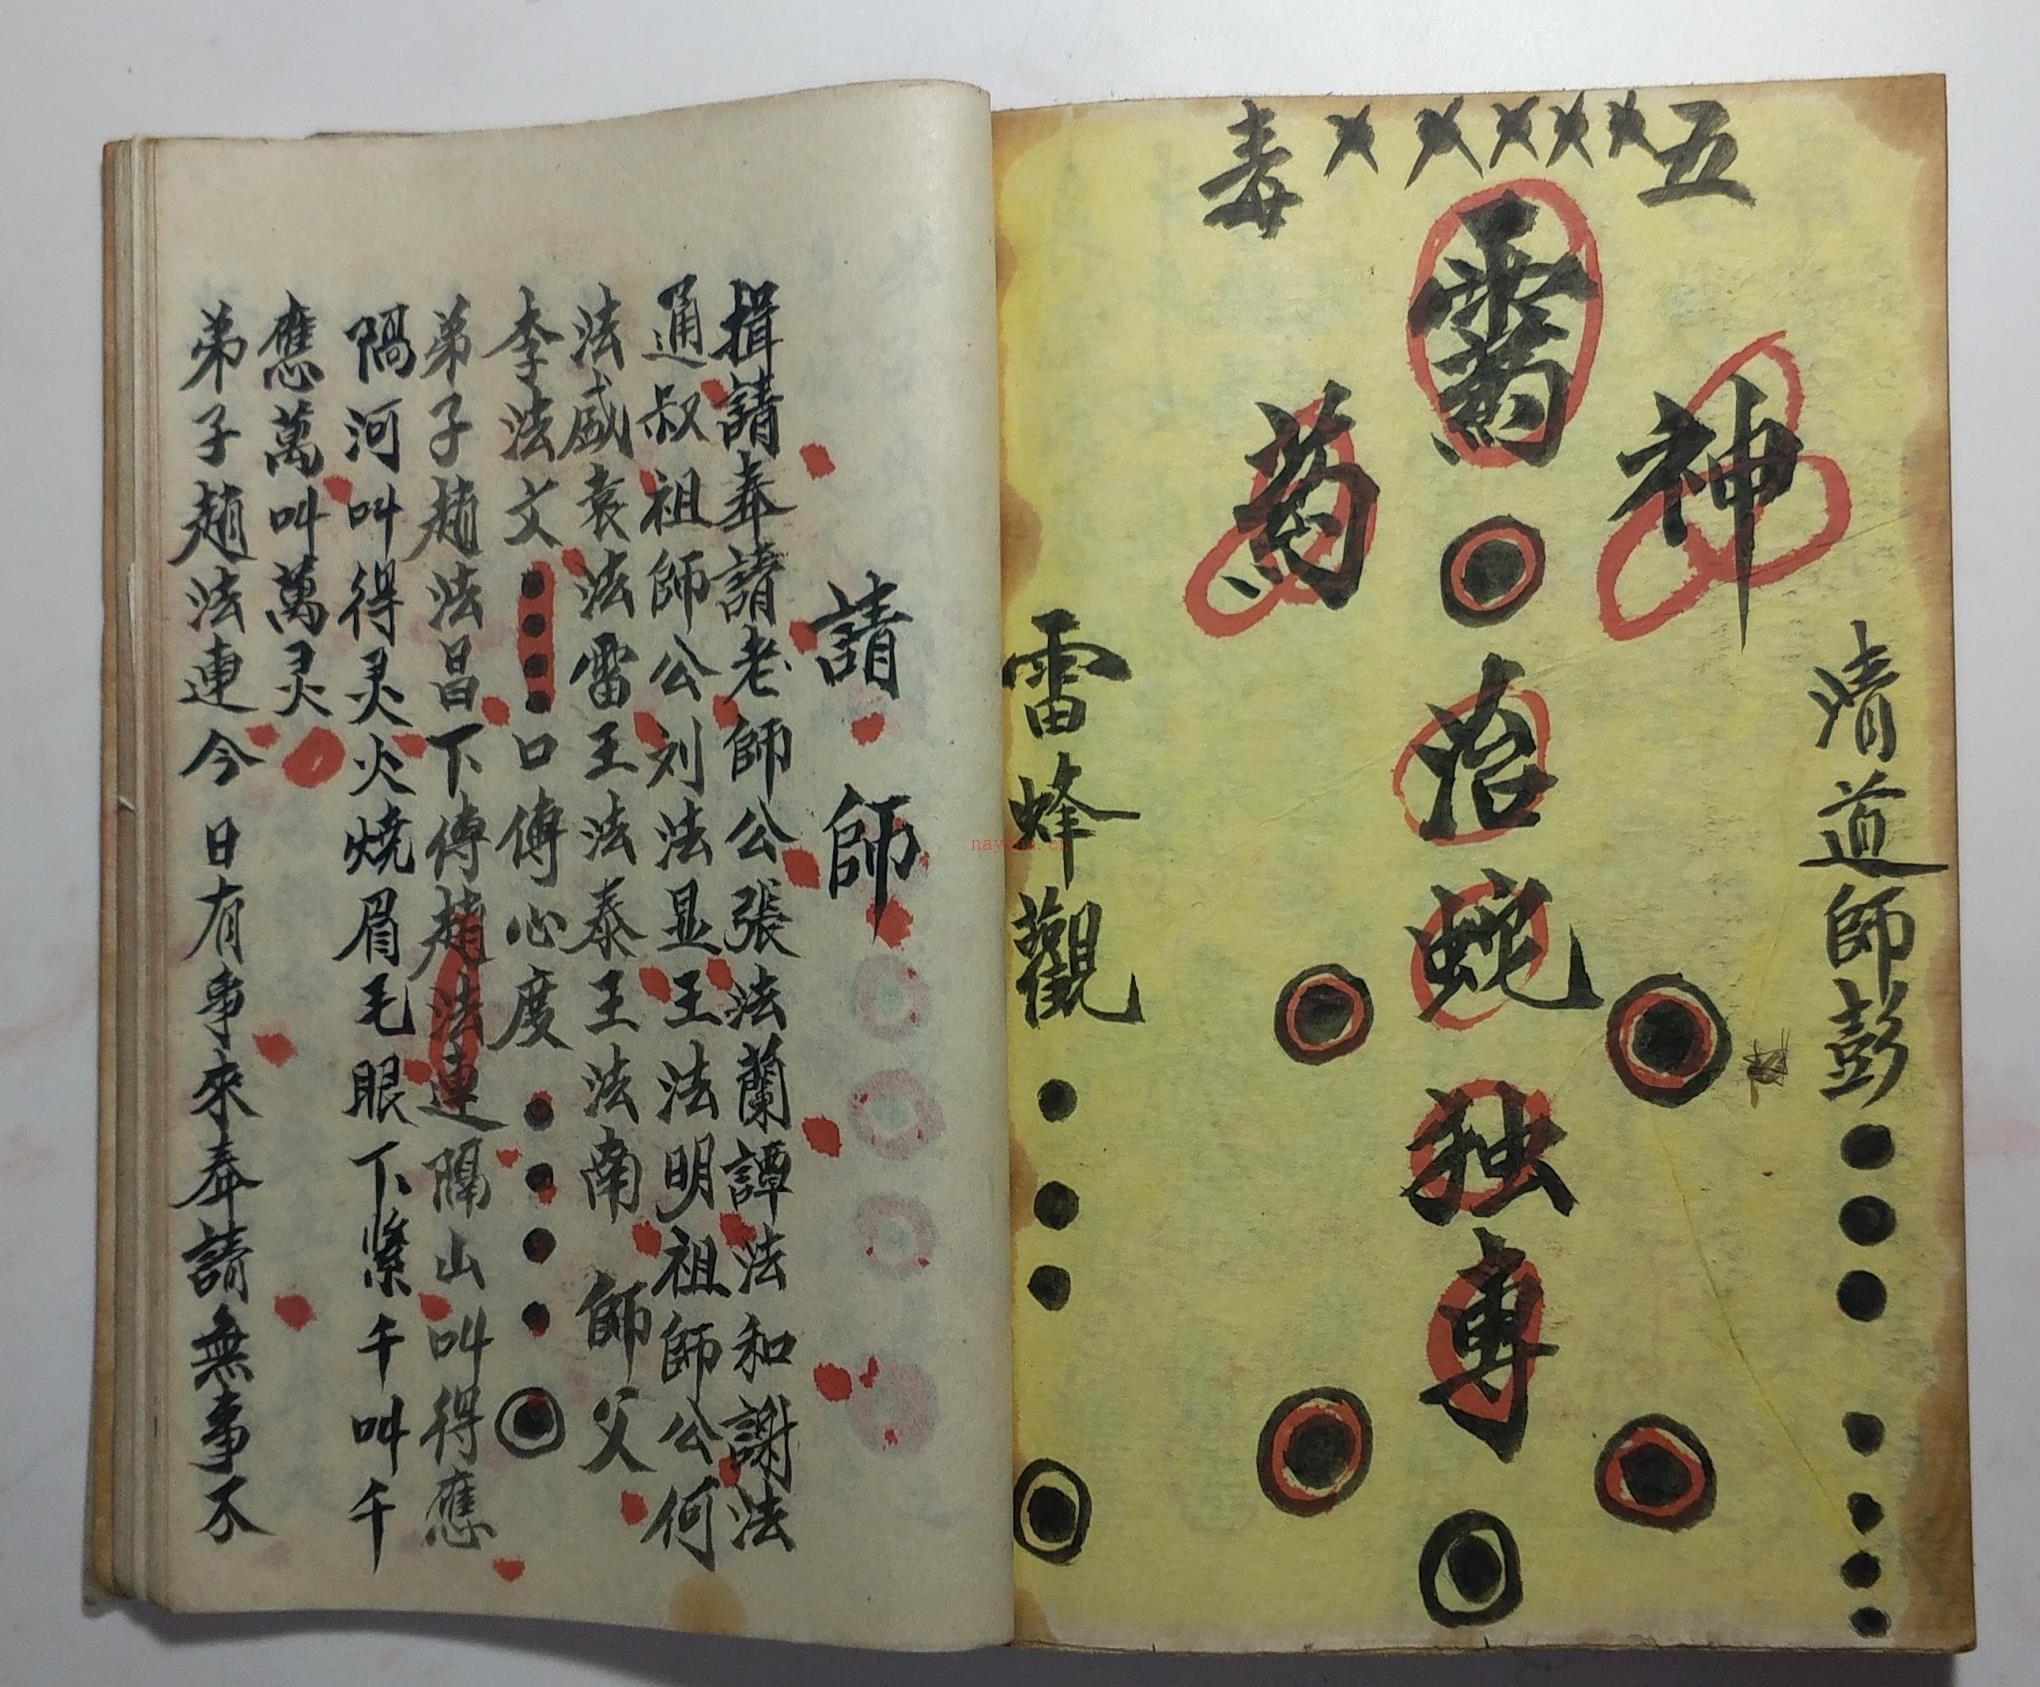 五×××××毒
清道師彭
神
治蛇独專
药
雷蜂觀
請師
揖請奉請老師公張法蘭譚法和謝法
通叔祖師公刘法显王法明祖師公何
法威袁法雷王法泰王法南 師父
李法文 口傳心度
弟子趙法昌下傳趙法連隔山叫得應
隔河叫得灵火燒眉毛眼下緊千叫千
應萬叫萬灵
弟子趙法連今日有事來奉請無事不